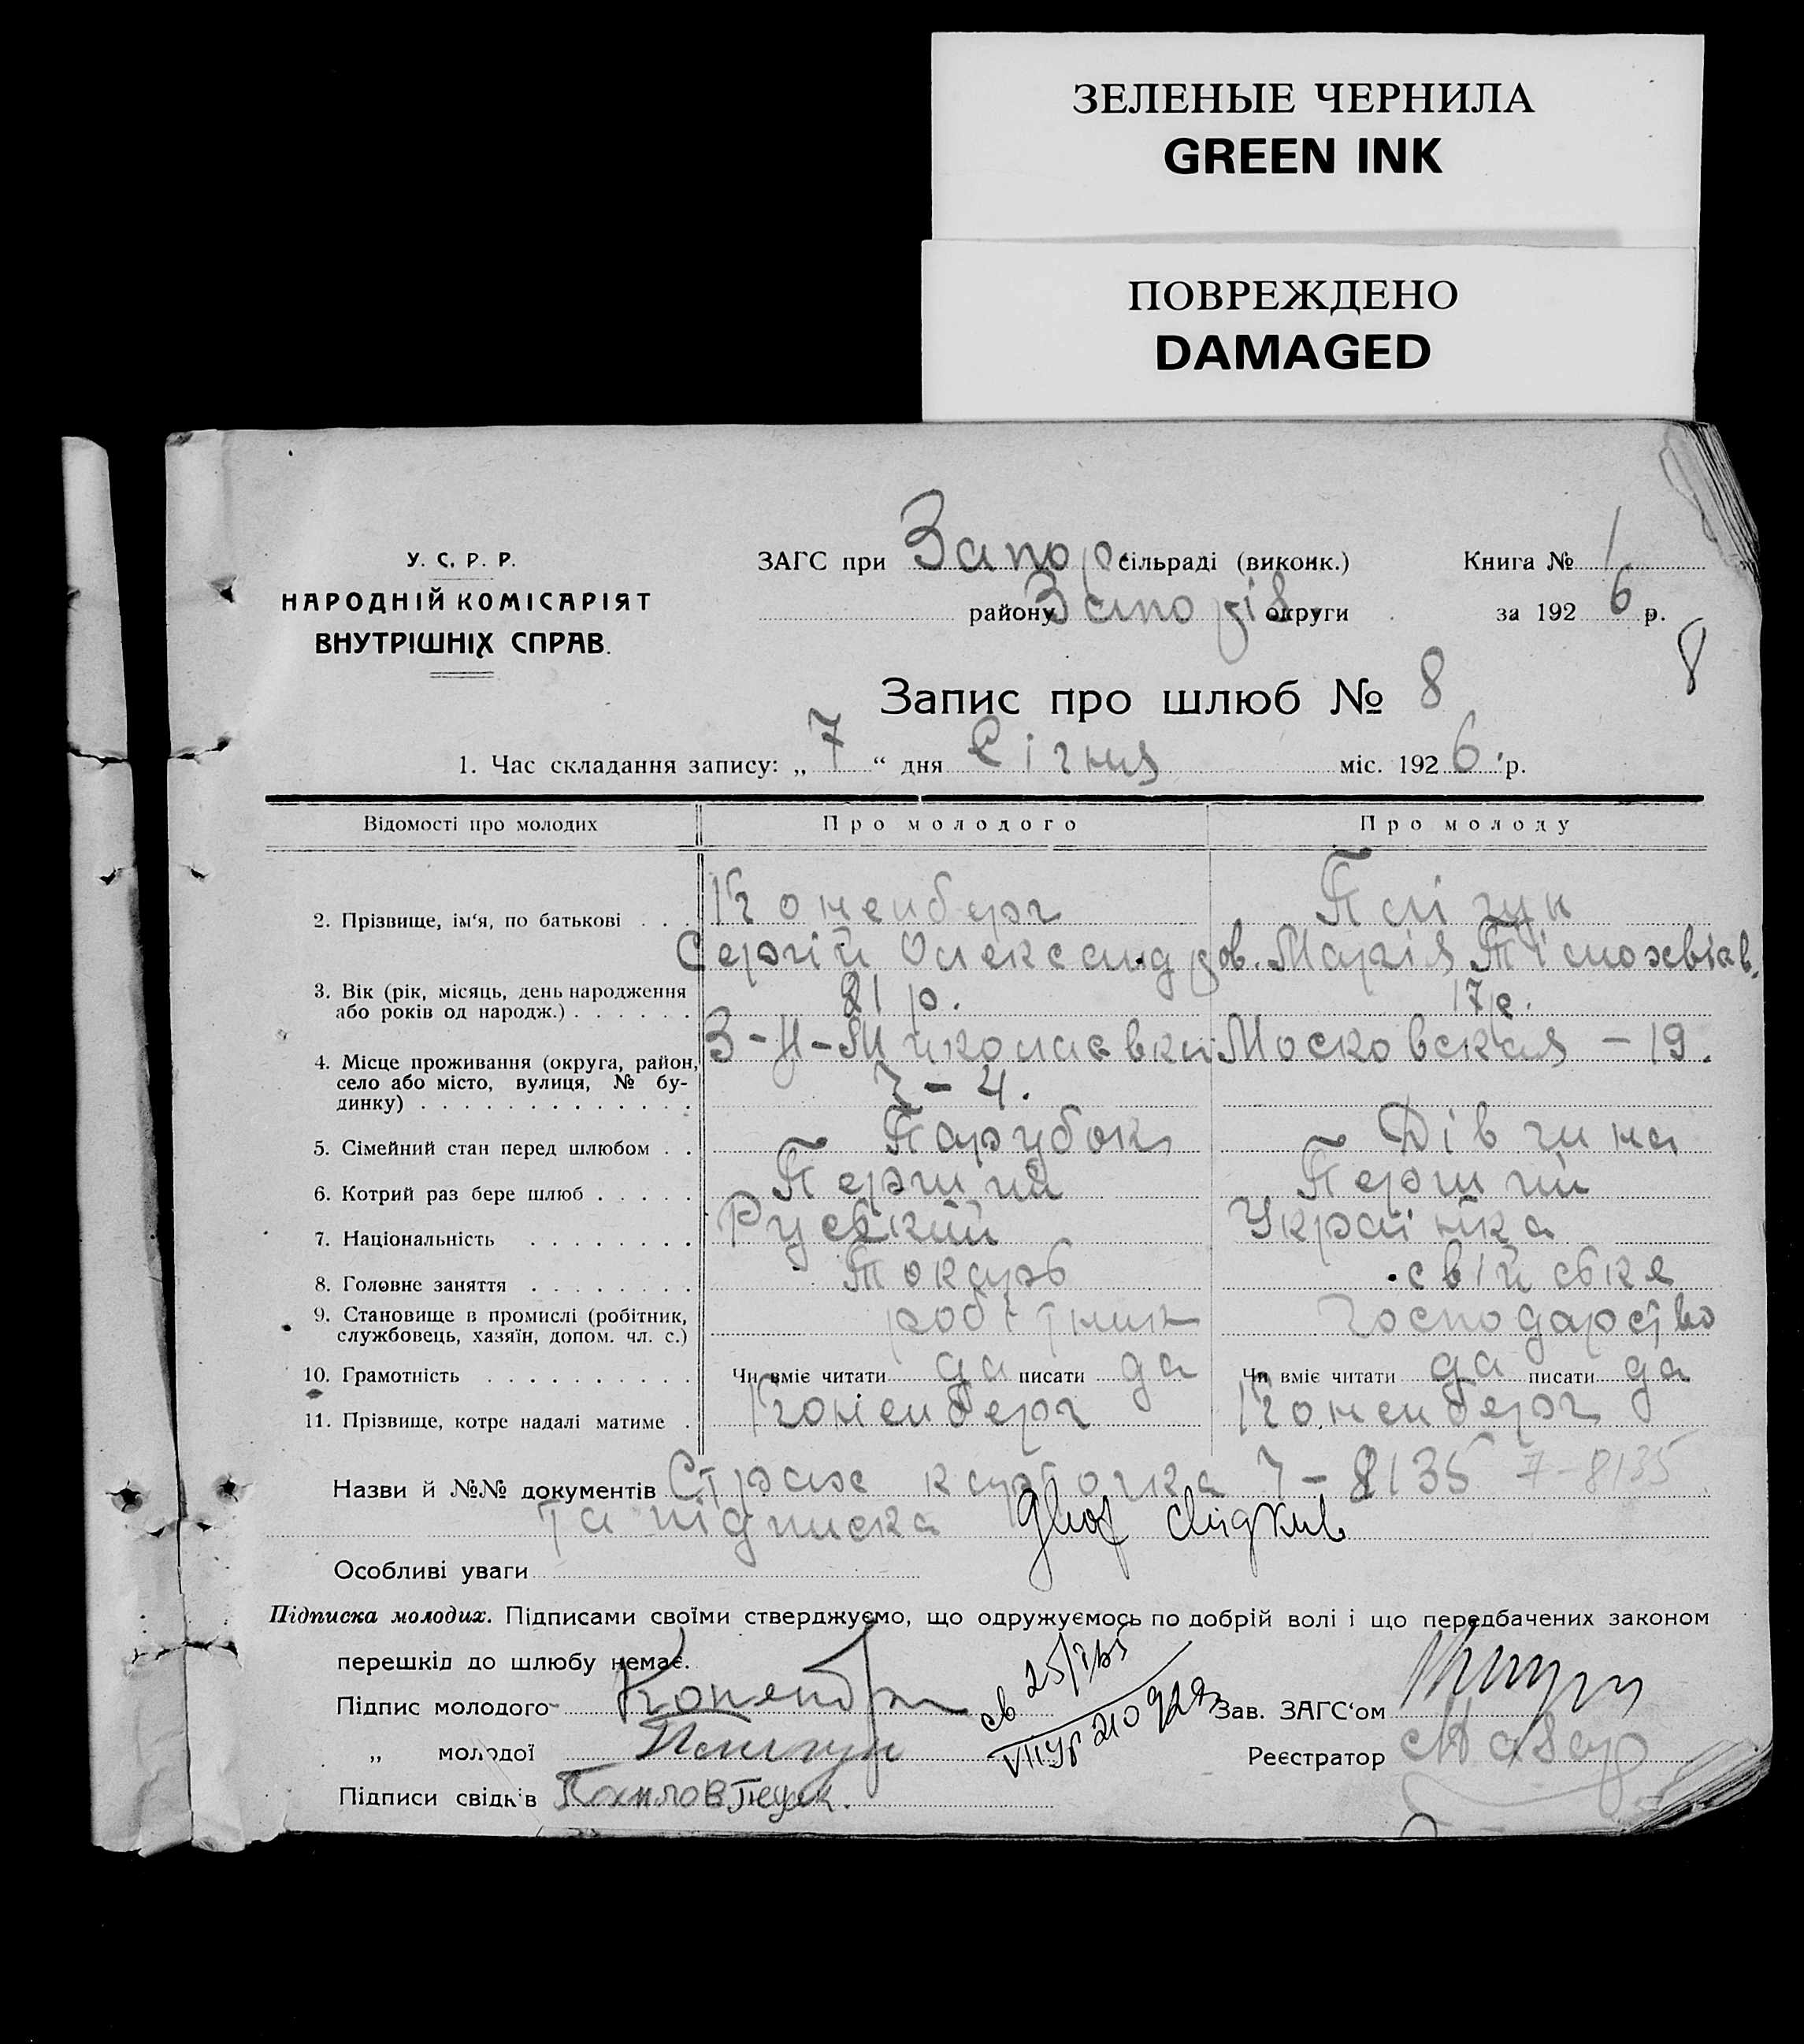 ЗЕЛЕНЫЕ ЧЕРНИЛА
GREEN INK
ПОВРЕЖДЕНО
DAMAGED
У. С. Р. Р.
НАРОДНІЙ КОМІСАРІЯТ
ВНУТРІШНІХ СПРАВ.
ЗАГС при Запор. сільраді (виконк.)
району Запоріз. округи
Книга № 1
за 1926 р.
8
Запис про шлюб № 8
1. Час складання запису: „ 7 “ дня Січня міс. 1926 р.
Відомості про молодих Про молодого Про молоду
2. Прізвище, ім'я, по батькові . . . Коненберг
Сергій Олександров. Марія Тімохвієв.
3. Вік (рік, місяць, день народження або років од народж.) . . . . . . 21 р. 17 р.
4. Місце проживання (округа, район, село або місто, вулиця, № будинку) . . . . . . . . . . . . . З-Н-Миколаєвка Московская - 19.
7-4.
5. Сімейний стан перед шлюбом . . Парубок Дівчина
6. Котрий раз бере шлюб . . . . . Перший Перший
7. Національність . . . . . . . . Руський Українка
8. Головне заняття . . . . . . . Токарь свійське
9. Становище в промислі (робітник, службовець, хазяїн, допом. чл. с.) робітник господарство
10. Грамотність . . . . . . . . . . Чи вміє читати да писати да Чи вміє читати да писати да
11. Прізвище, котре надалі матиме . Коненберг Коненберг
Назви й №№ документів Страх карточка 7-8135 7-8135
та підписка двох свідків
Особливі уваги
Підписка молодих. Підписами своїми стверджуємо, що одружуємось по добрій волі і що передбачених законом
перешкід до шлюбу немає.
Підпис молодого Коненбер
„ молодої
Підписи свідків
Зав. ЗАГС'ом
Реєстратор